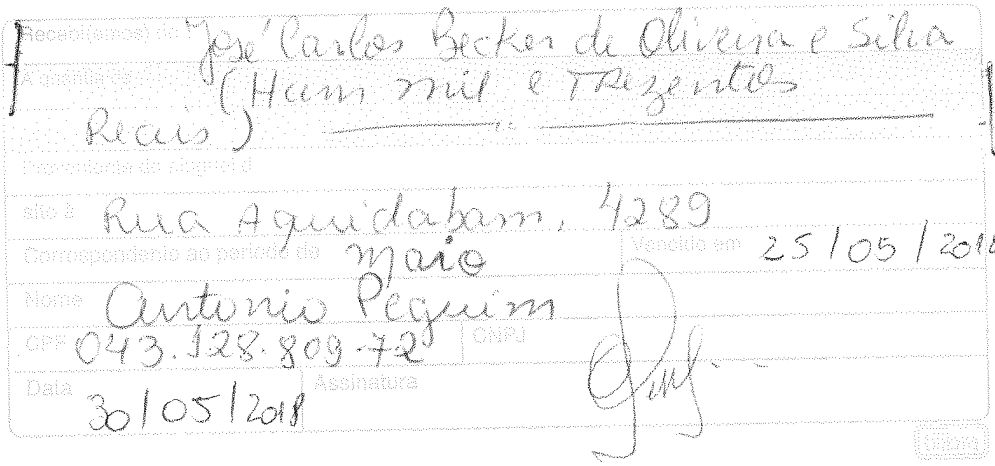 Recebi(emos) do José Carlos Becker de Oliveira e Silva
A quantia de (Hum mil e Trezentos
Reais)
Proveniente do aluguel d
sito à Rua Aquidabam, 4289
Correspondente ao período de maio Vencido em 25/05/2018
Nome Antonio Peguim
CPF 043.128.809-72 CNPJ
Data 30/05/2018 Assinatura